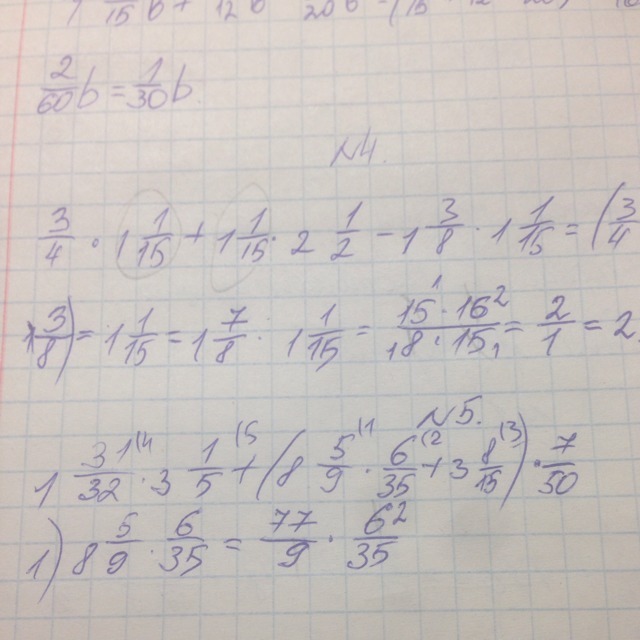 2/60 b = 1/30 b.
№4.
3/4 · 1 1/15 + 1 1/15 · 2 1/2 - 1 3/8 · 1 1/15 = (3/4
1 3/8) = 1 1/15 = 1 7/8 · 1 1/15 = 15 · 16/8 · 15 = 2/1 = 2.
№5.
1 31/32 (4 · 3 1/5 (5 + (8 5/9 (1 · 6/35 (2 + 3 8/15 (3) · 7/50
1) 8 5/9 · 6/35 = 77/9 · 6/35 2